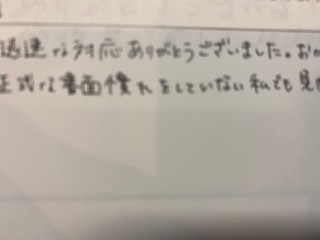 迅速な対応ありがとうございました。おか
正式な書面慣れをしていない私でも見